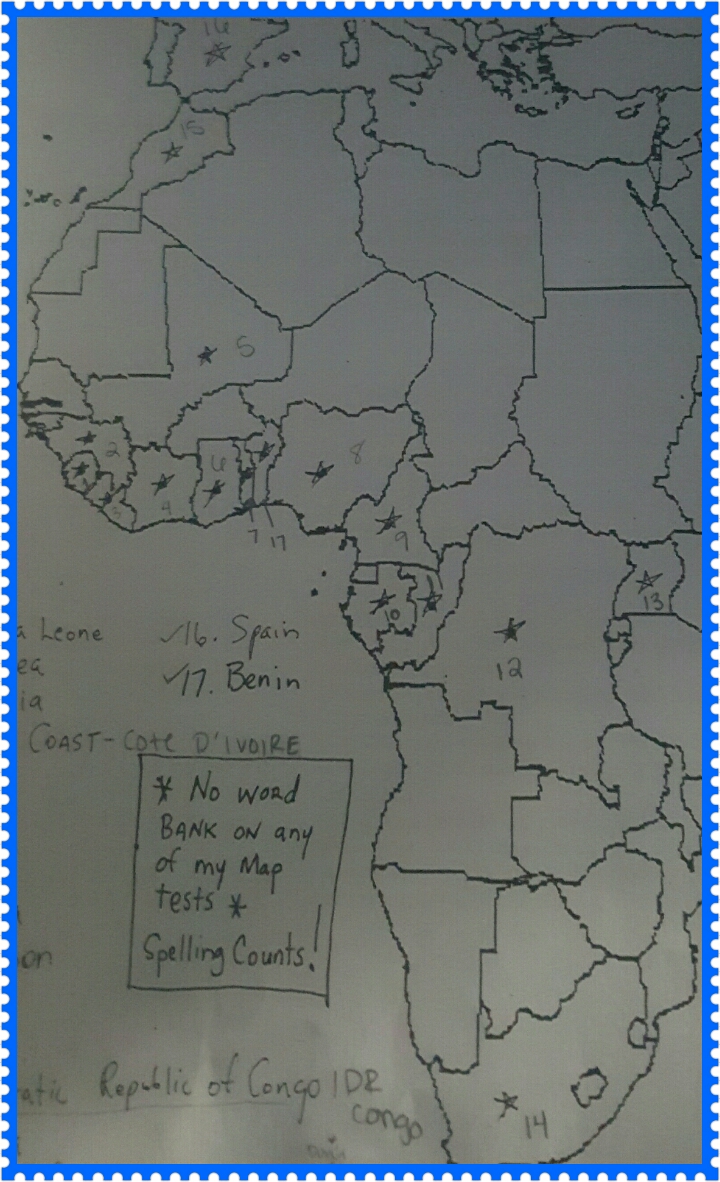 16
15
5
2
6
8
4
3
9
7 17
10
13
12
a Leone
✓16. Spain
ea
✓17. Benin
ia
COAST-Cote D'IVOIRE
* No word
BANK ON any
of my Map
tests *
Spelling Counts!
on
atic Republic of Congo / DR
Congo
14